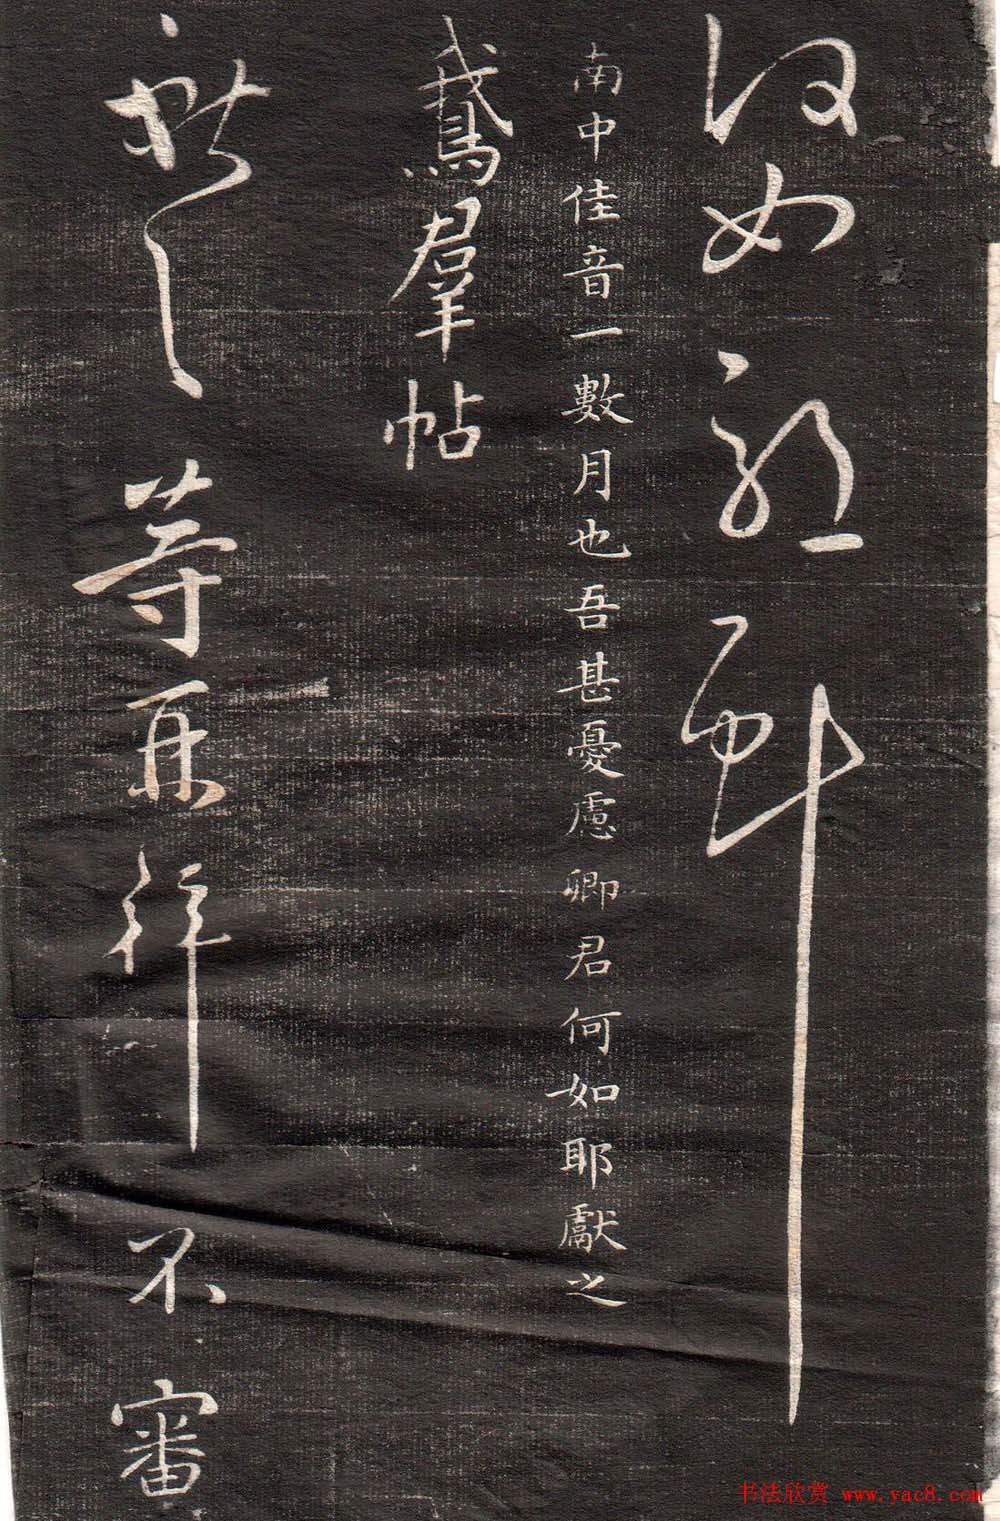 何如
南中佳音一數月也吾甚憂慮卿君何如耶獻之
鵞羣帖
獻之等再拜不審
书法欣赏 www.yac8.com